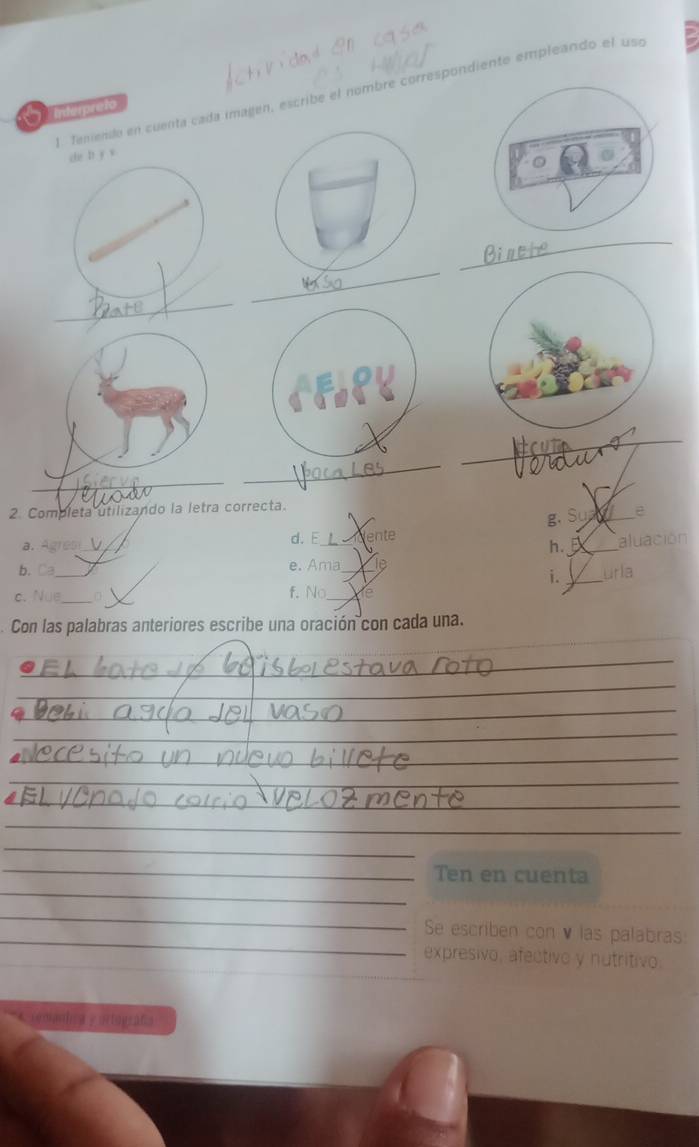 Actividad en casa
Interpreto
1. Teniendo en cuenta cada imagen, escribe el nombre correspondiente empleando el uso
de b y v.
Bate
vaso
Binete
AEIOU
Siervo
Venado
Vocales
Verdura
2. Completa utilizando la letra correcta.
a. Agresi_V_o
d. E_L_idente
g. Sua___e
b. Ca___
e. Ama___le
h. E___aluación
c. Nue___o
f. No___le
i. ___urla
Con las palabras anteriores escribe una oración con cada una.
EL bate de beisbol estava roto
Bebi agua del vaso
Necesito un nuevo billete
EL venado corrio velozmente
Ten en cuenta
Se escriben con v las palabras:
expresivo, afectivo y nutritivo.
semántica y ortografía